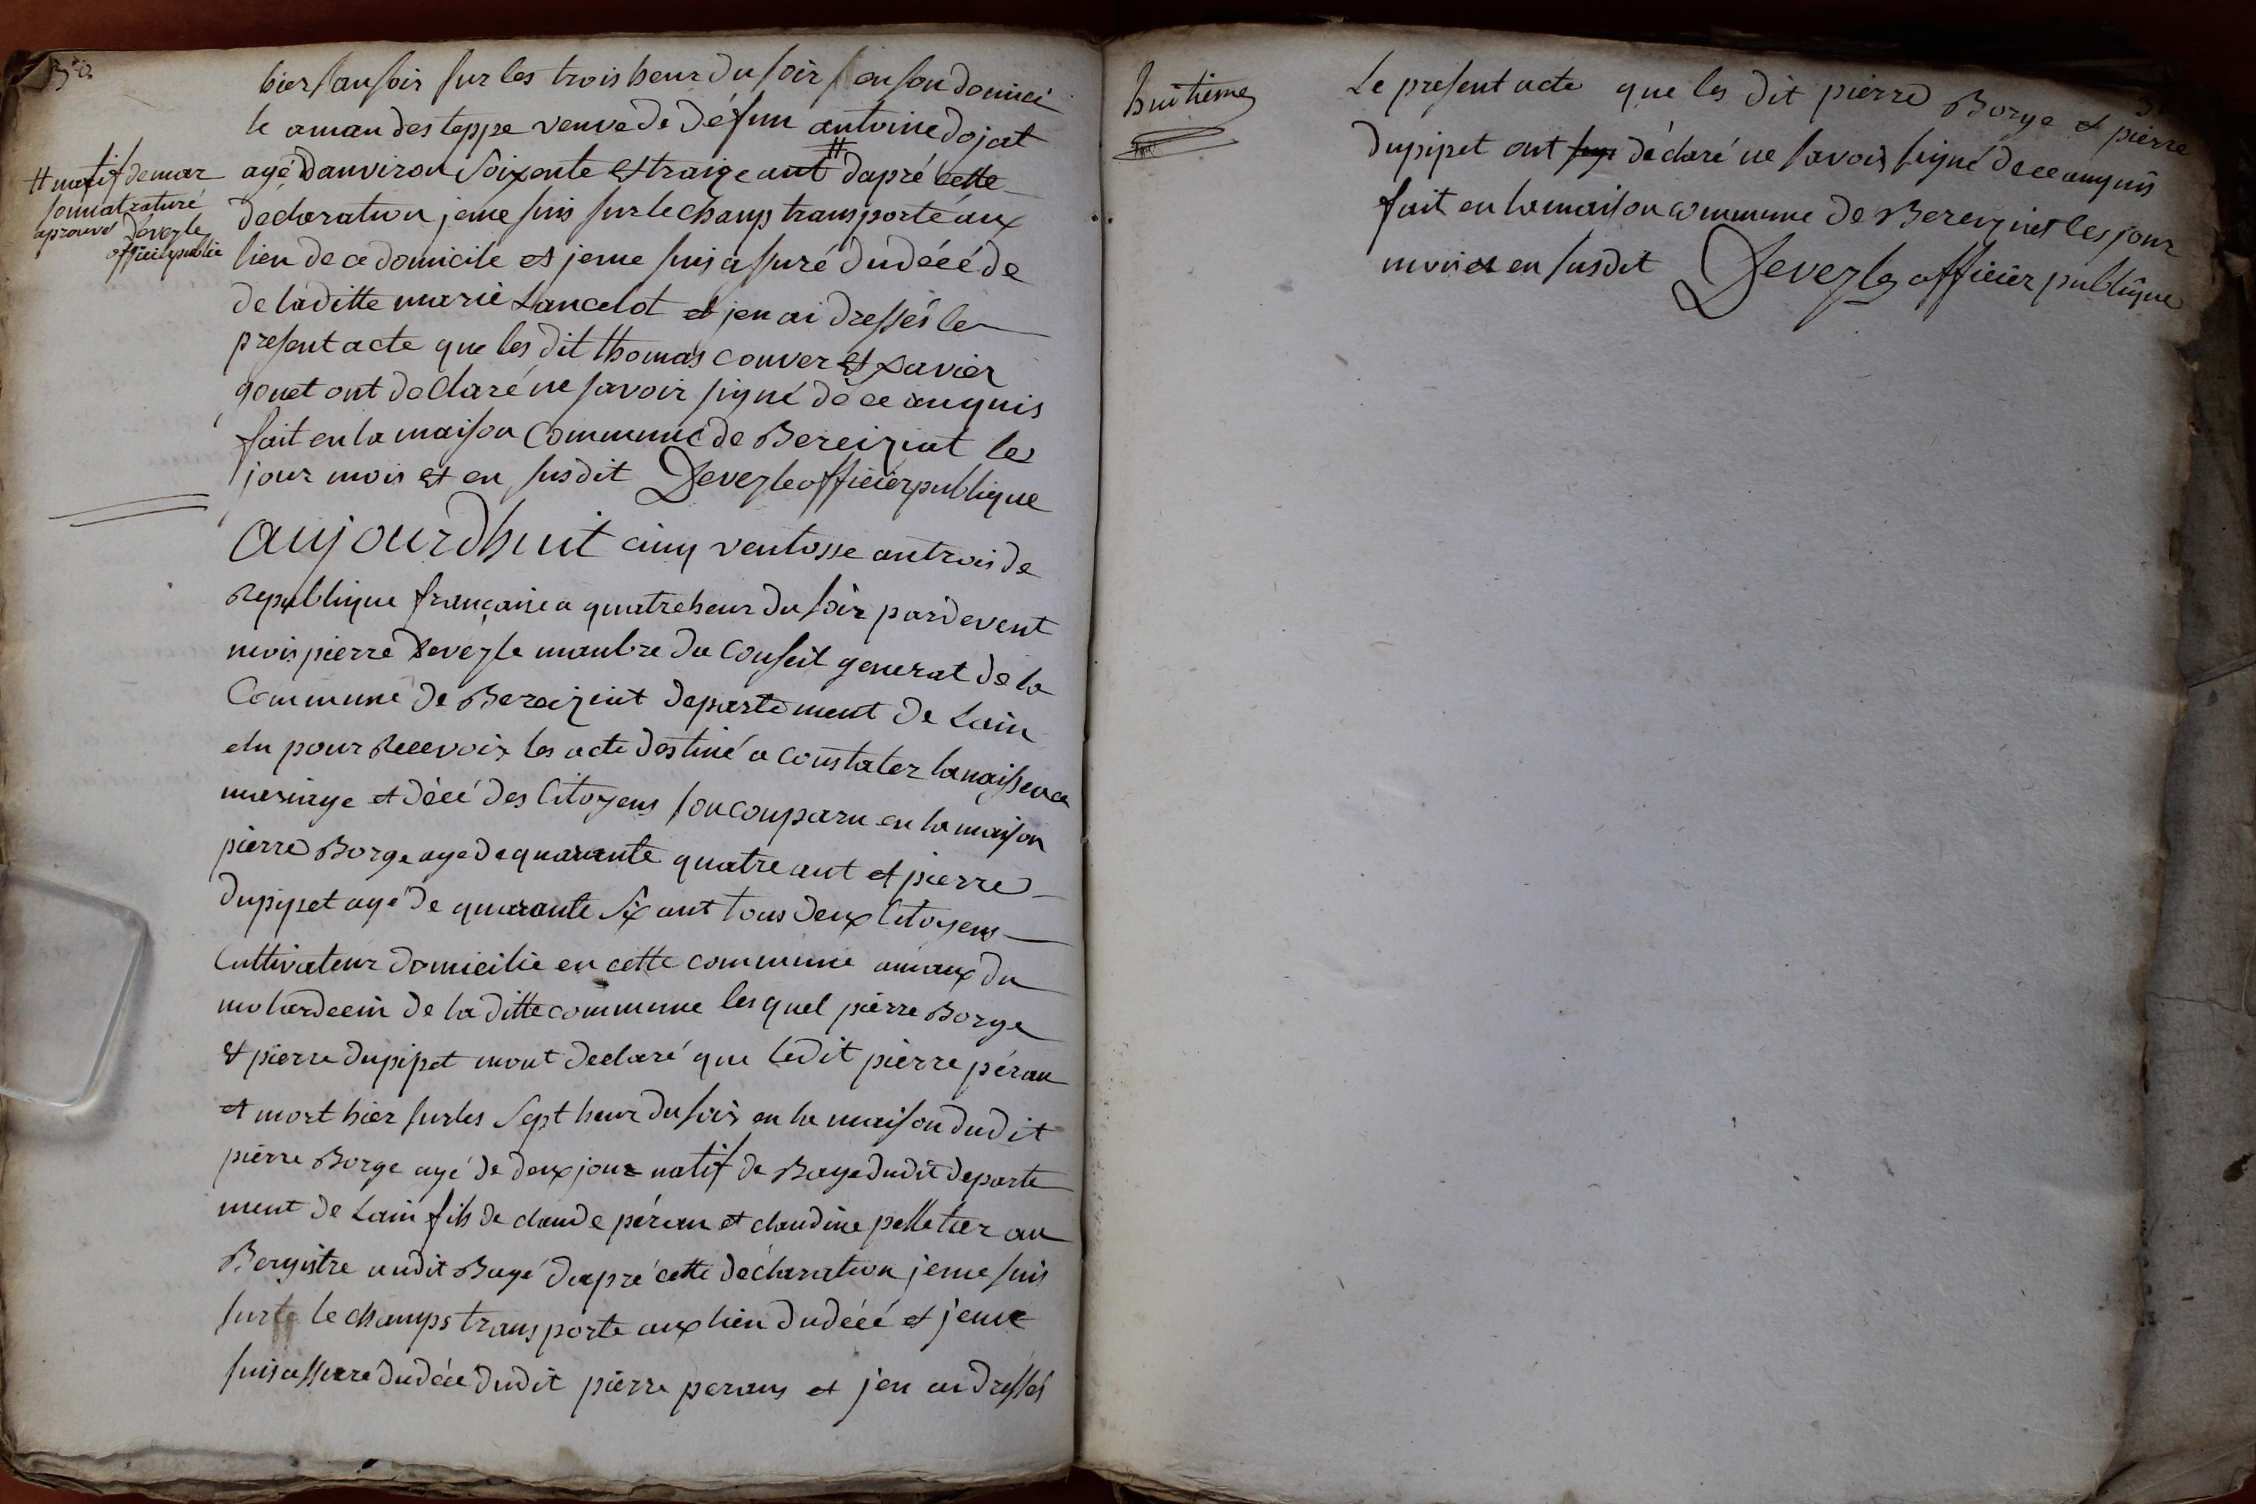 hier sau soir sur les trois heur du soir en son domici
le aman des teppe veuve de défun antoine dojat
agé d'anviron soixente et traize ant # dapré cette
declaration je me suis sur le champ transporté aux
lieu de ce domicile et je me suis assuré du décé de
de la ditte marie Lancelot et jen ai dressés le
present acte que les dit thomas couver et xavier
gonet ont declaré ne savoir signé de ce anquis
fait en la maison commune de Bereiziat le
jour mois et en susdit Devezle officier publique
# natif de mar
sonnat raturé
aprouvé Devezle
officier public
aujourdhuit cinq ventosse an trois de
Republique française a quatre heur du soir pardevent
mois pierre Devezle manbre du Conseil generat de la
Commune de Bereiziat departement de Lain
elu pour Recevoir les acte destiné a constater la naissence
mariage et décé des Citoyens son conparu en la maison
pierre Borge agé de quarante quatre ant et pierre
dupipet agé de quarante six ant tous deux Citoyens
Cultivateur domicilié en cette commune amaux du
molardecin de la ditte commune lesquel pierre Borge
et pierre dupipet mont declaré que ledit pierre péran
et mort hier sur les sept heur du soir en la maison dudit
pierre Borge agé de deux jour natif de Bagé dudit departe
ment de Lain fils de claude péran et claudine pelletier au
Registre audit Bagé dapré cette déclaration je me suis
sur le le champs transporte aux lieu du décé et je me
suis assuré du décé dudit pierre perans et j'en ai dressés
huitieme
Le present acte que les dit pierre Borge et pierre
dupipet ont déclaré ne savoir signé de ce anquis
fait en la maison commune de Bereiziat les jour
mois et en susdit Devezle officier publique